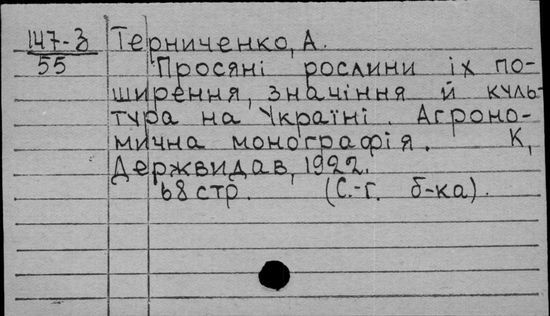 147-З Терниченко, А.
55 Просяні рослини їх по-
ширення, значіння й куль-
тура на Україні. Агроно-
мична монографія. К,
Держвидав, 1922.
68 стр. (С.-г. б-ка).